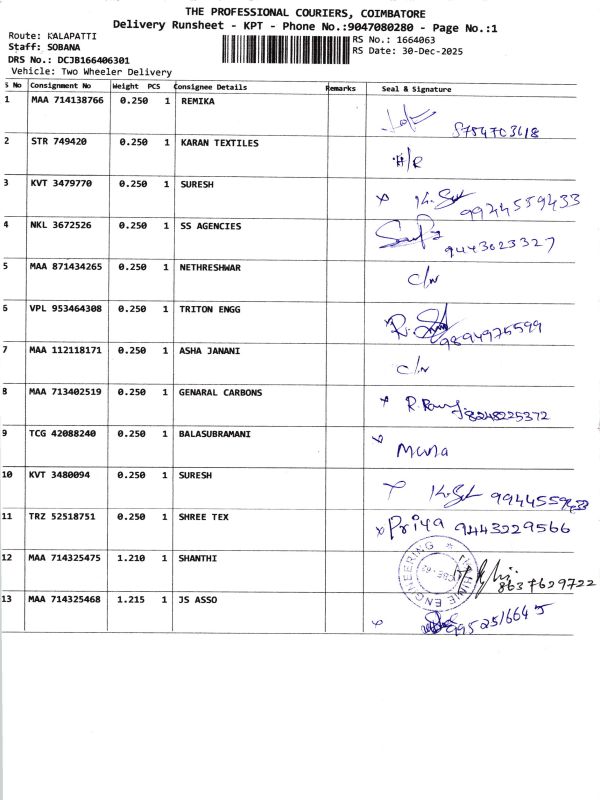 THE PROFESSIONAL COURIERS, COIMBATORE
Delivery Runsheet - KPT - Phone No.:9047080280 - Page No.:1
Route: KALAPATTI
RS No.: 1664063
Staff: SOBANA
RS Date: 30-Dec-2025
DRS No.: DCJB166406301
Vehicle: Two Wheeler Delivery
S No Consignment No Weight PCS Consignee Details Remarks Seal & Signature
1 MAA 714138766 0.250 1 REMIKA
8754703618
2 STR 749420 0.250 1 KARAN TEXTILES H/R
3 KVT 3479770 0.250 1 SURESH 9944559433
4 NKL 3672526 0.250 1 SS AGENCIES 9443023327
5 MAA 871434265 0.250 1 NETHRESHWAR C/N
6 VPL 953464308 0.250 1 TRITON ENGG 9894975599
7 MAA 112118171 0.250 1 ASHA JANANI C/N
8 MAA 713402519 0.250 1 GENARAL CARBONS 8248225372
9 TCG 42088240 0.250 1 BALASUBRAMANI Mala
10 KVT 3480094 0.250 1 SURESH 9944559433
11 TRZ 52518751 0.250 1 SHREE TEX Priya 9443229566
12 MAA 714325475 1.210 1 SHANTHI 8637629722
13 MAA 714325468 1.215 1 JS ASSO 9952516645